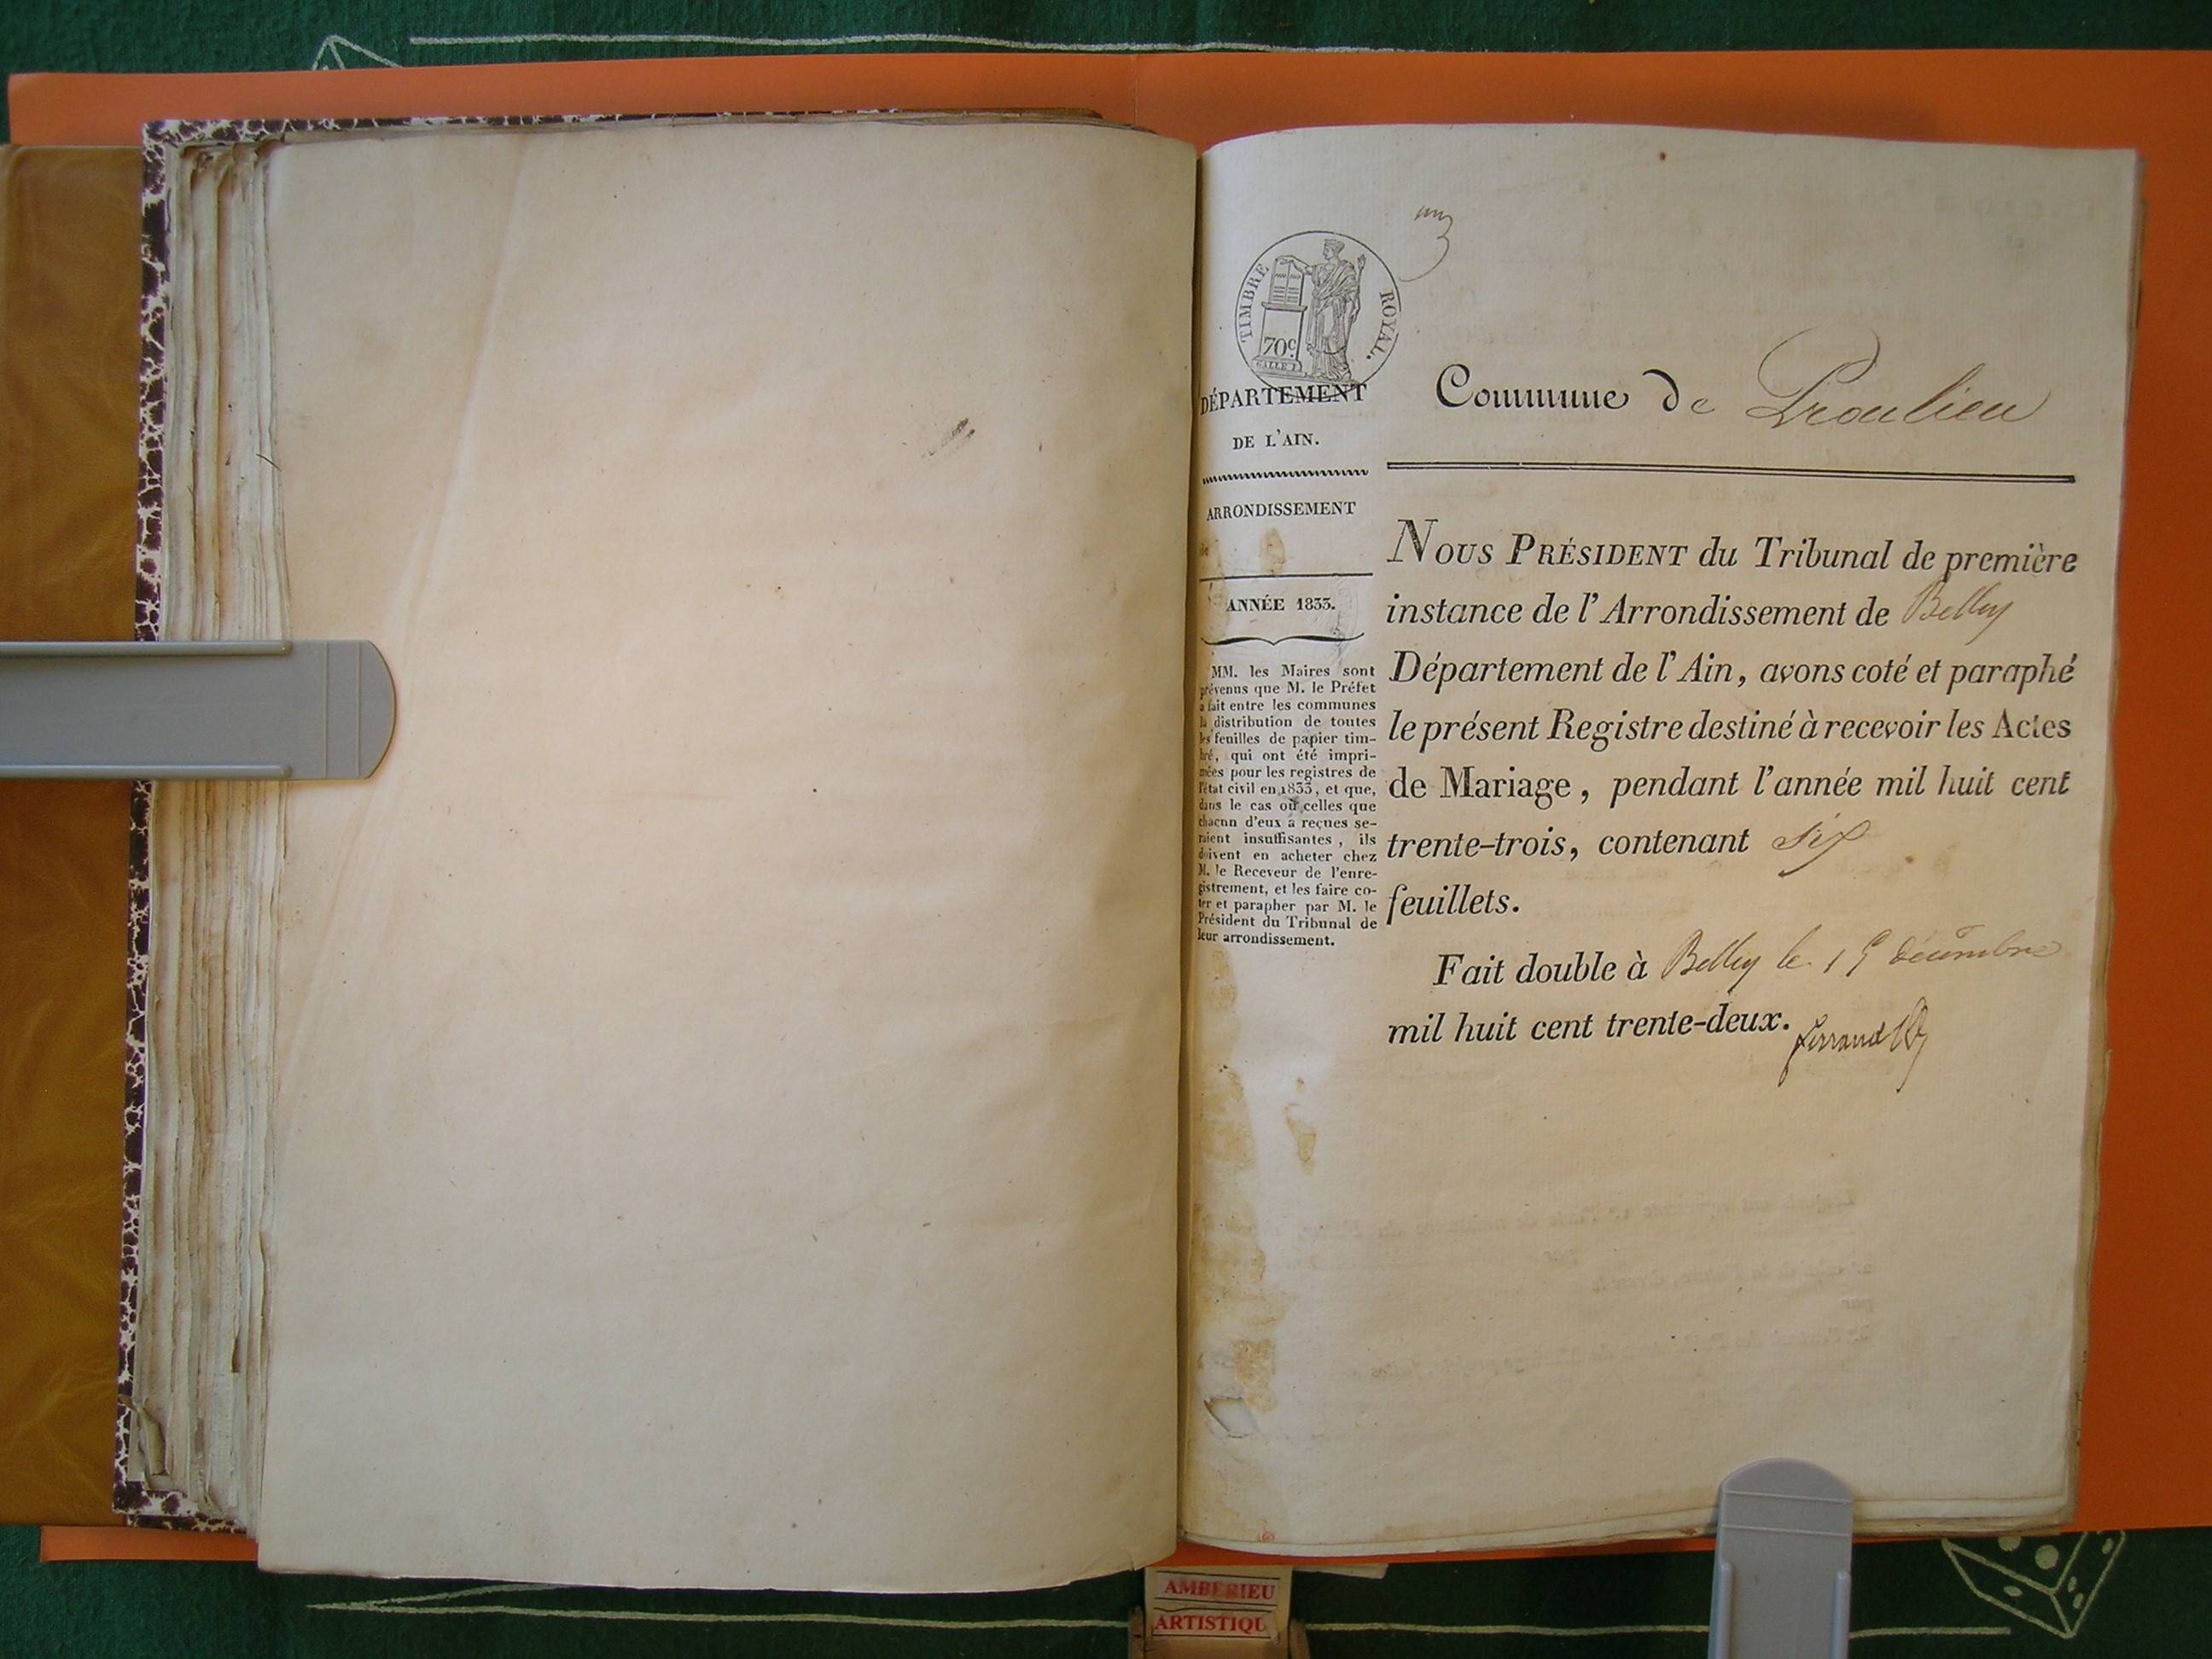 TIMBRE ROYAL.
70c
DÉPARTEMENT
DE L'AIN.
ARRONDISSEMENT
de
ANNÉE 1833.
MM. les Maires sont
prévenus que M. le Préfet
a fait entre les communes
la distribution de toutes
les feuilles de papier tim-
bré, qui ont été impri-
mées pour les registres de
l'état civil en 1833, et que,
dans le cas où celles que
chacun d'eux a reçues se-
raient insuffisantes, ils
doivent en acheter chez
M. le Receveur de l'enre-
gistrement, et les faire co-
ter et parapher par M. le
Président du Tribunal de
leur arrondissement.
Commune de Proulieu
NOUS PRÉSIDENT du Tribunal de première
instance de l'Arrondissement de Belley
Département de l'Ain, avons coté et paraphé
le présent Registre destiné à recevoir les Actes
de Mariage, pendant l'année mil huit cent
trente-trois, contenant six
feuillets.
Fait double à Belley le 15 décembre
mil huit cent trente-deux.
AMBERIEU
ARTISTIQU